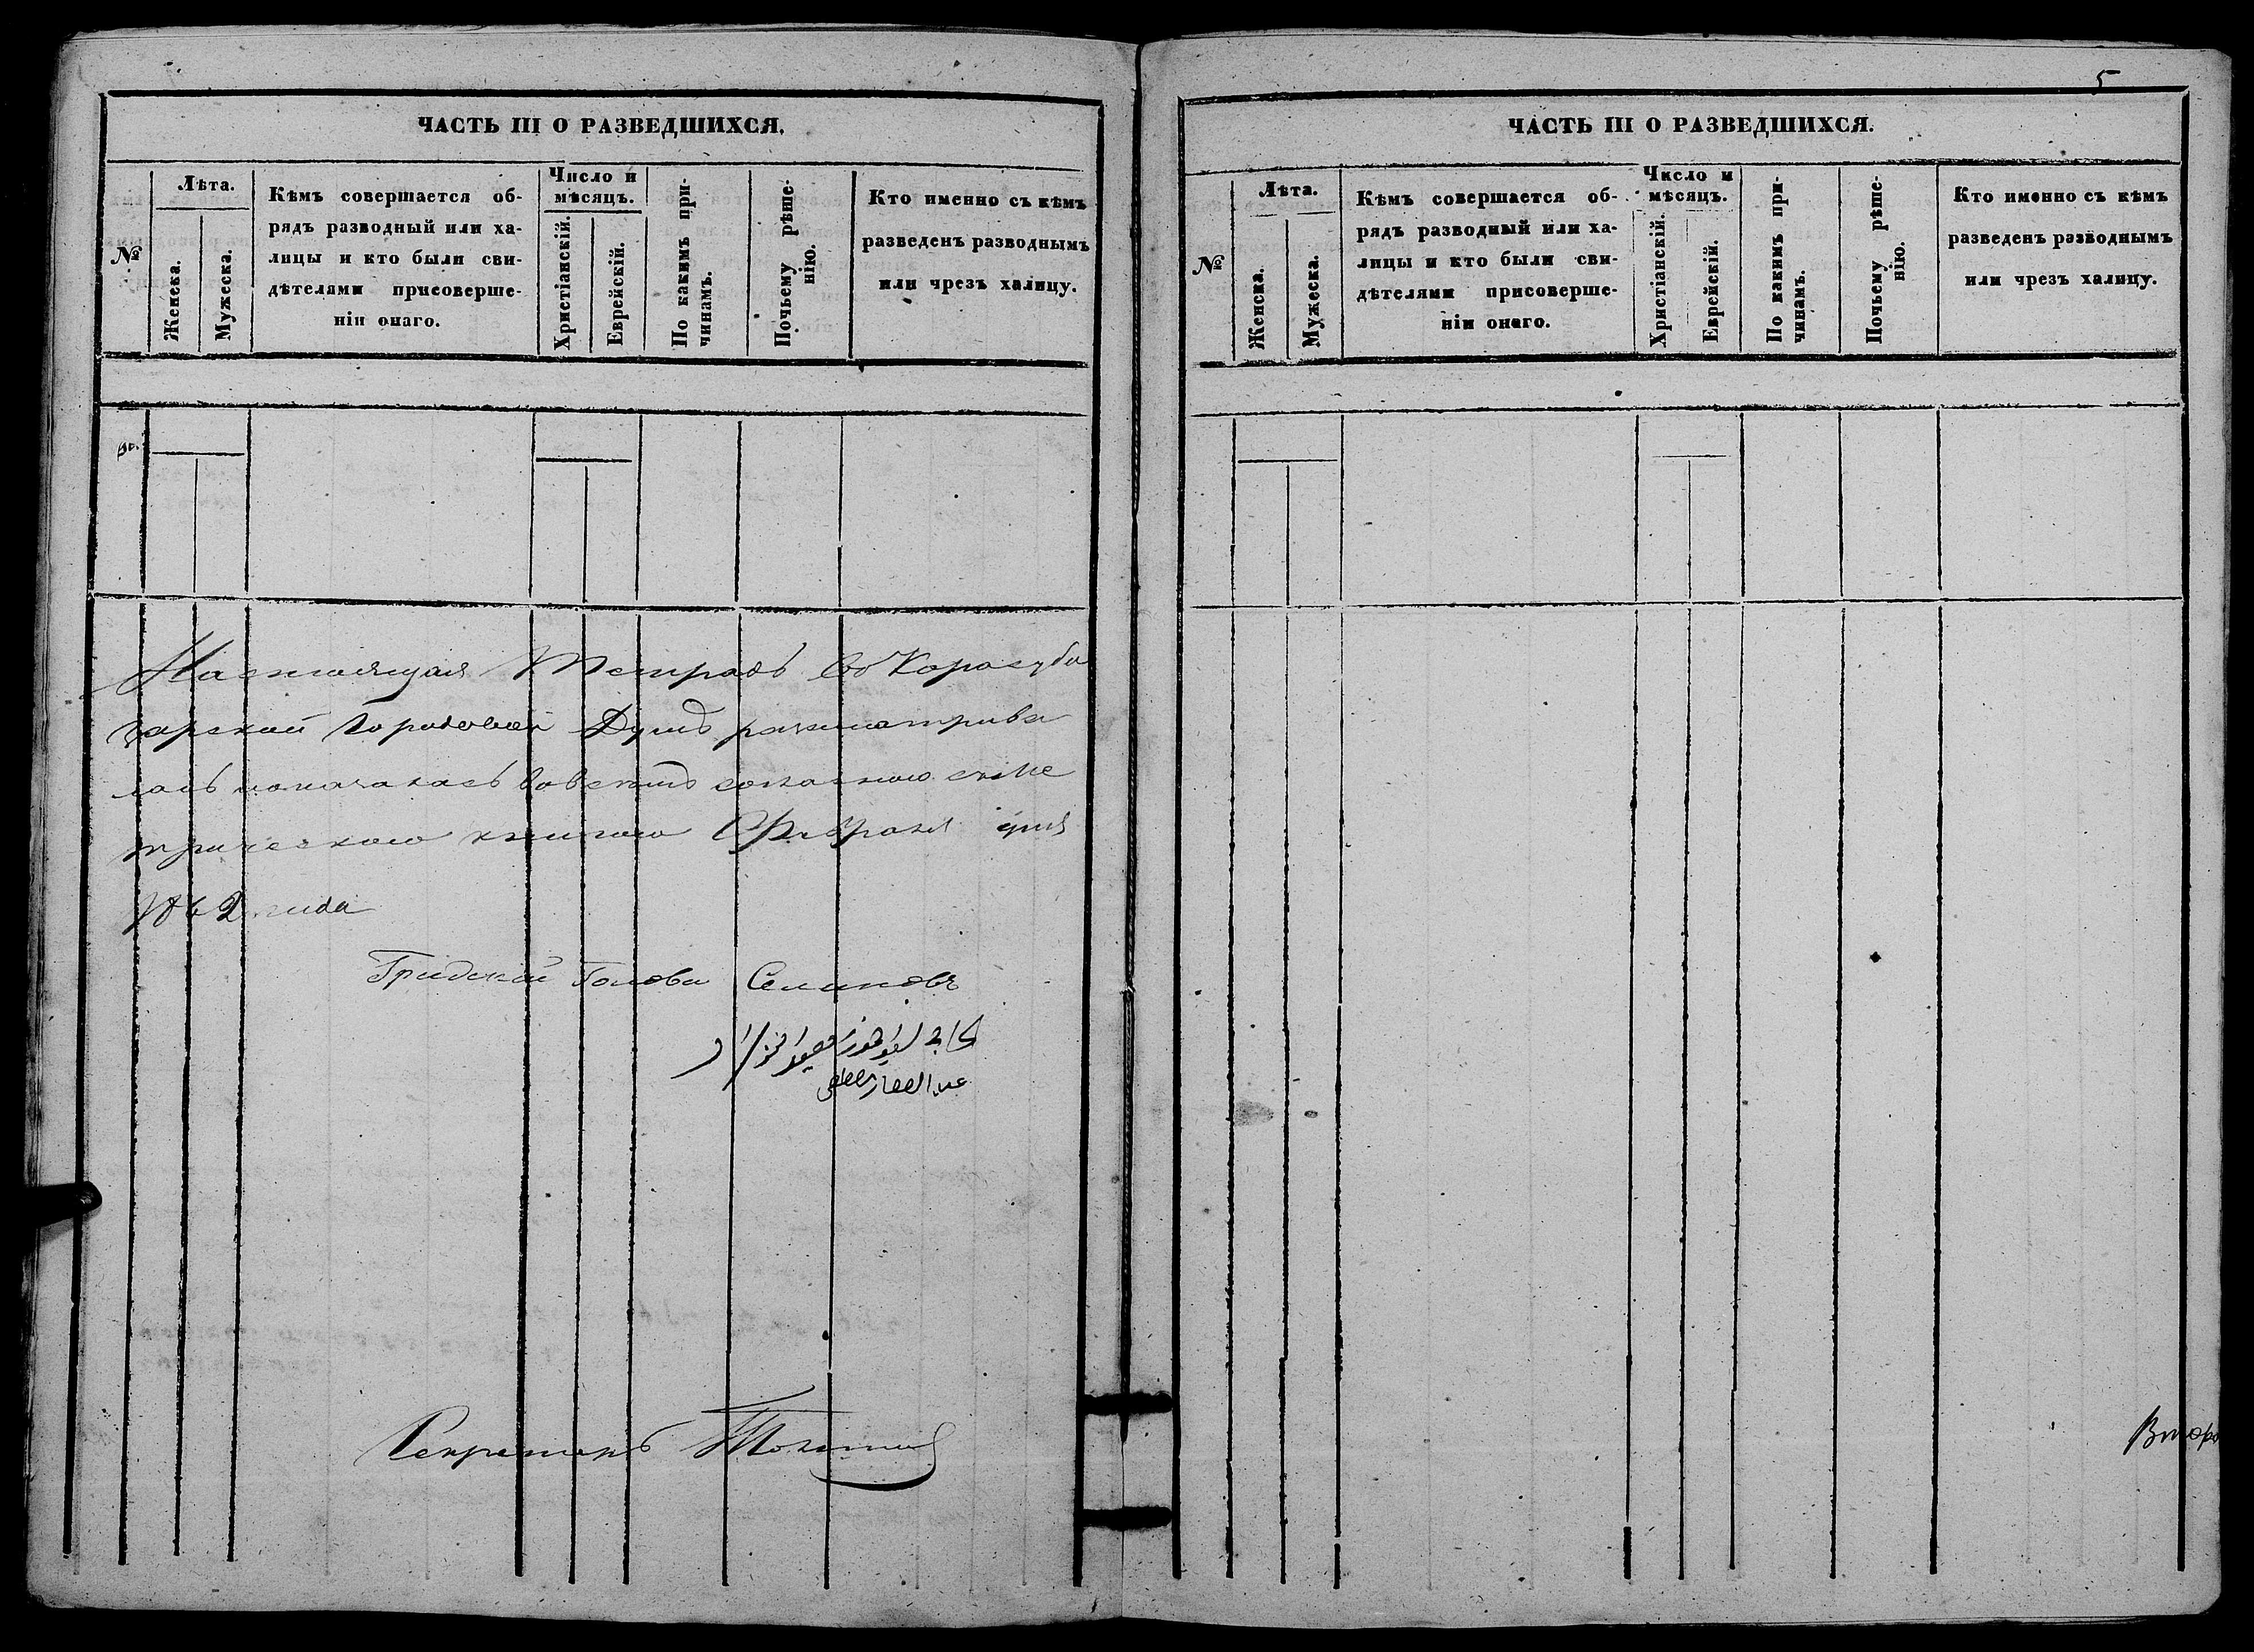 ЧАСТЬ III О РАЗВЕДШИХСЯ.
№
Лѣта.
Женска.
Мужеска.
Кѣмъ совершается об-
рядъ разводный или ха-
лицы и кто были сви-
дѣтелями присоверше-
ніи онаго.
Число и
мѣсяцъ.
Христіанскій.
Еврейскій.
По какимъ при-
чинамъ.
Почьему рѣше-
нію.
Кто именно съ кѣмъ
разведенъ разводнымъ
или чрезъ халицу.
Настоящая Тетрадь въ Карасуба
зарской Городовой Думѣ разсматрива
лась и оказалась
книгою Февраля дня
1862 года
Градской Голова
Секретарь
5
ЧАСТЬ III О РАЗВЕДШИХСЯ.
№
Лѣта.
Женска.
Мужеска.
Кѣмъ совершается об-
рядъ разводный или ха-
лицы и кто были сви-
дѣтелями присоверше-
ніи онаго.
Число и
мѣсяцъ.
Христіанскій.
Еврейскій.
По какимъ при-
чинамъ.
Почьему рѣше-
нію.
Кто именно съ кѣмъ
разведенъ разводнымъ
или чрезъ халицу.
Второ